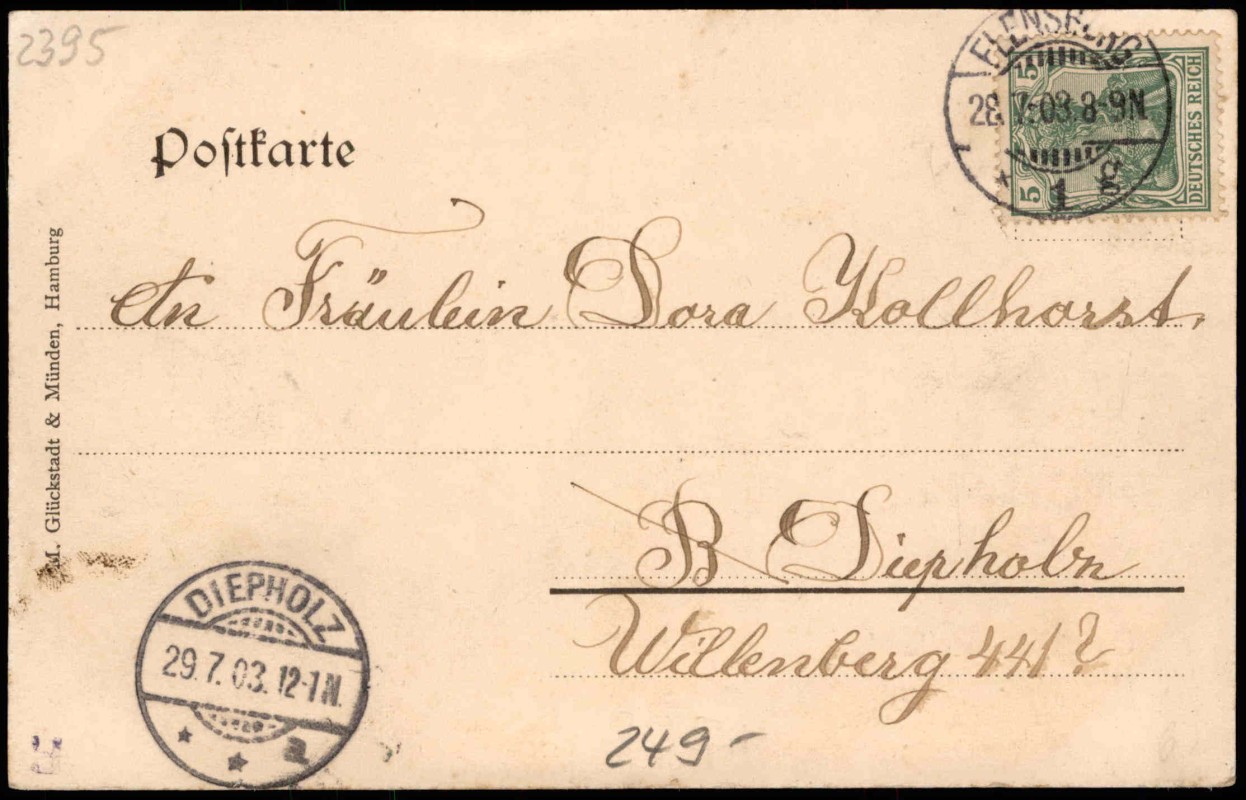 2395
FLENSBURG
28.7.03.8-9N.
* 1 g
5
5
DEUTSCHES REICH
Poſtkarte
M. Glückstadt & Münden, Hamburg
An Fräulein Dora Kollhorst.
B Diepholz
Willenberg 441?
DIEPHOLZ
29.7.03.12-1N.
* * a
249-